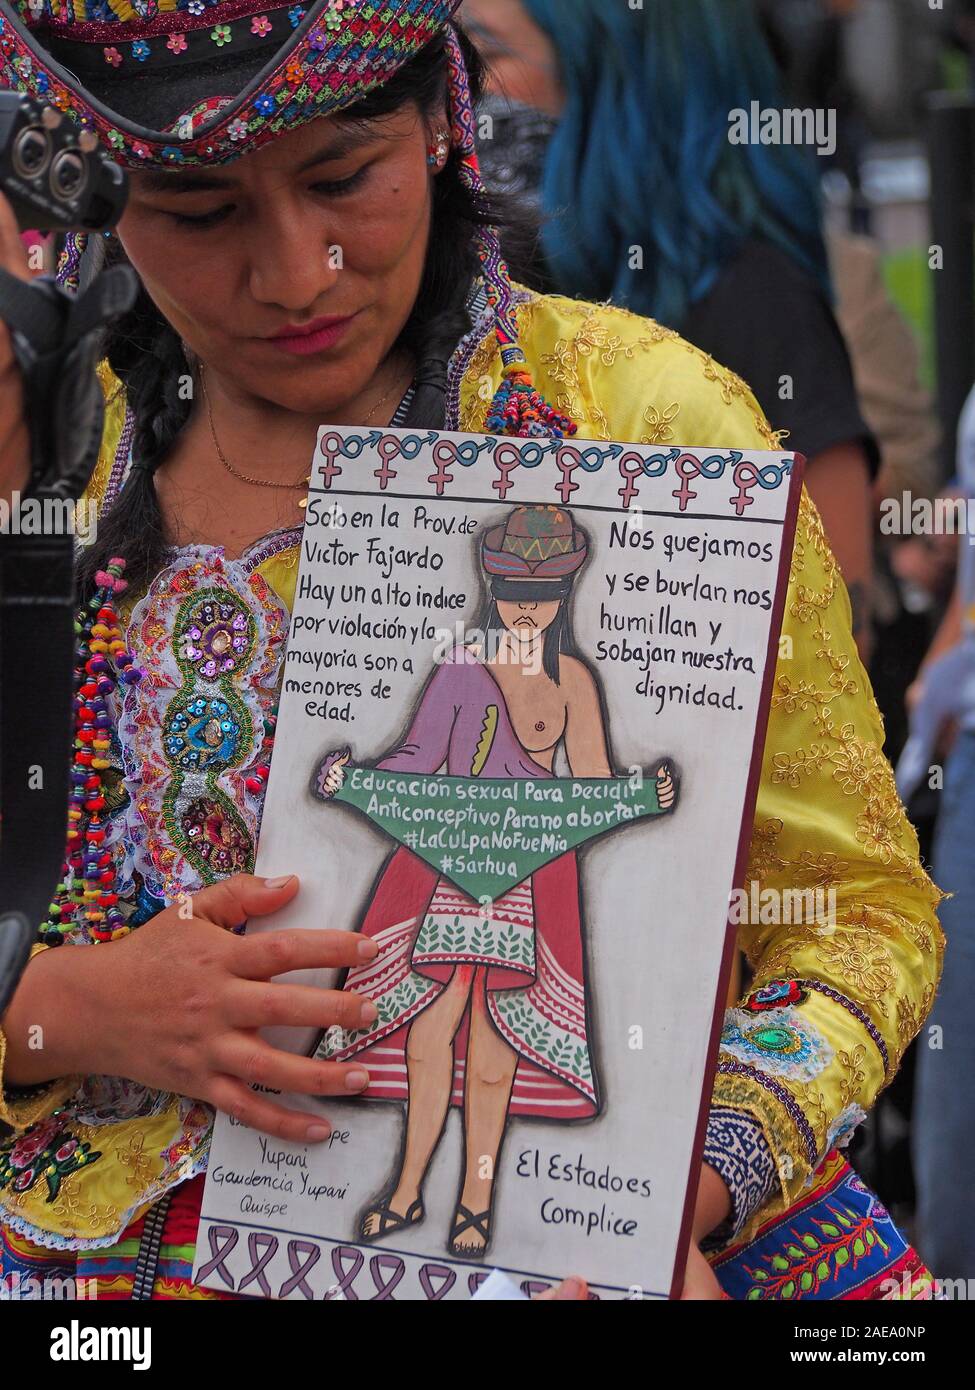 Solo en la Prov. de
Victor Fajardo
Hay un alto indice
por violación y la
mayoria son a
menores de
edad.
Nos quejamos
y se burlan nos
humillan y
sobajan nuestra
dignidad.
Educación sexual Para Decidir
Anticonceptivo Para no abortar
#LaCulpaNoFueMia
#Sarhua
Yupari
Gaudencia Yupari
Quispe
El Estado es
Complice
alamy
alamy stock photo
2AEA0NP
www.alamy.com